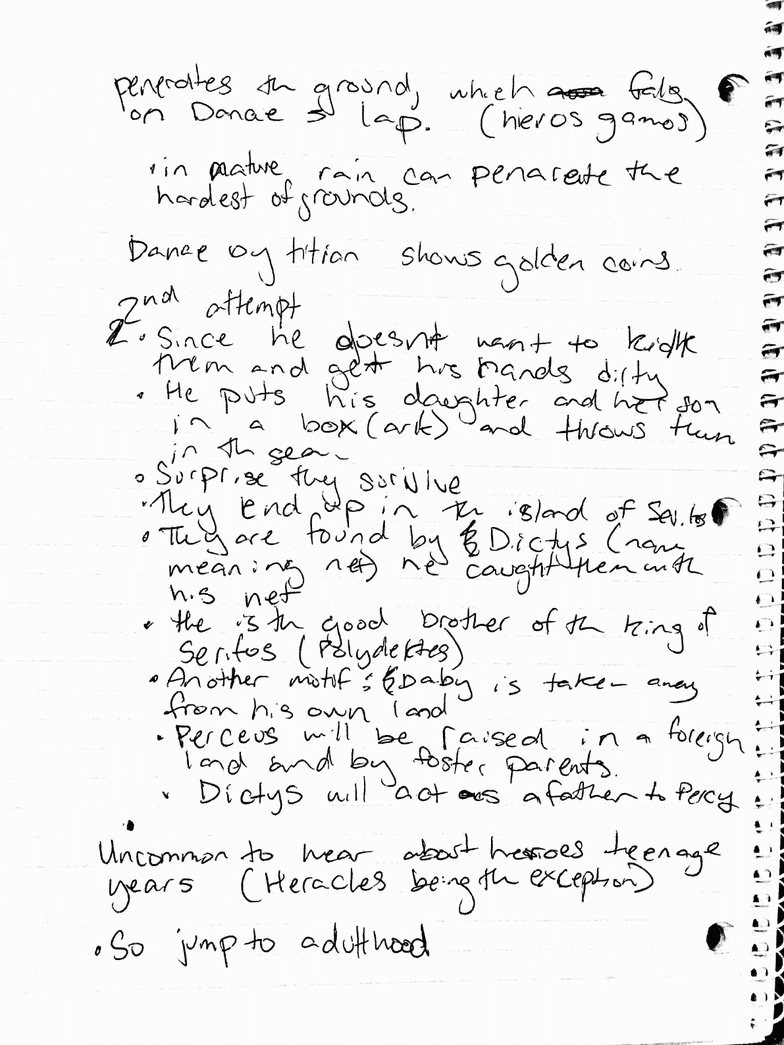 penerates th ground, which falls
on Danae s lap. (hieros gamos)
• in nature rain can penarate the
hardest of grounds.
Danae by titian shows golden coins.
2nd attempt
2. Since he doesnt want to
them and get his hands dirty
• He puts his daughter and her son
in a box (ark) and throws them
in th sea.
• Surprise they survive
• They end up in th island of Serifos
• They are found by Dictys (name
meaning net) he caught them with
his net
• He is th good brother of th king of
Serifos (Polydektes)
• Another motif: Baby is taken away
from his own land
• Perceus will be raised in a foreign
land and by foster parents.
• Dictys will act as a father to Percy
•
Uncommon to hear about heroes teenage
years (Heracles being th exception)
• So jump to adulthood